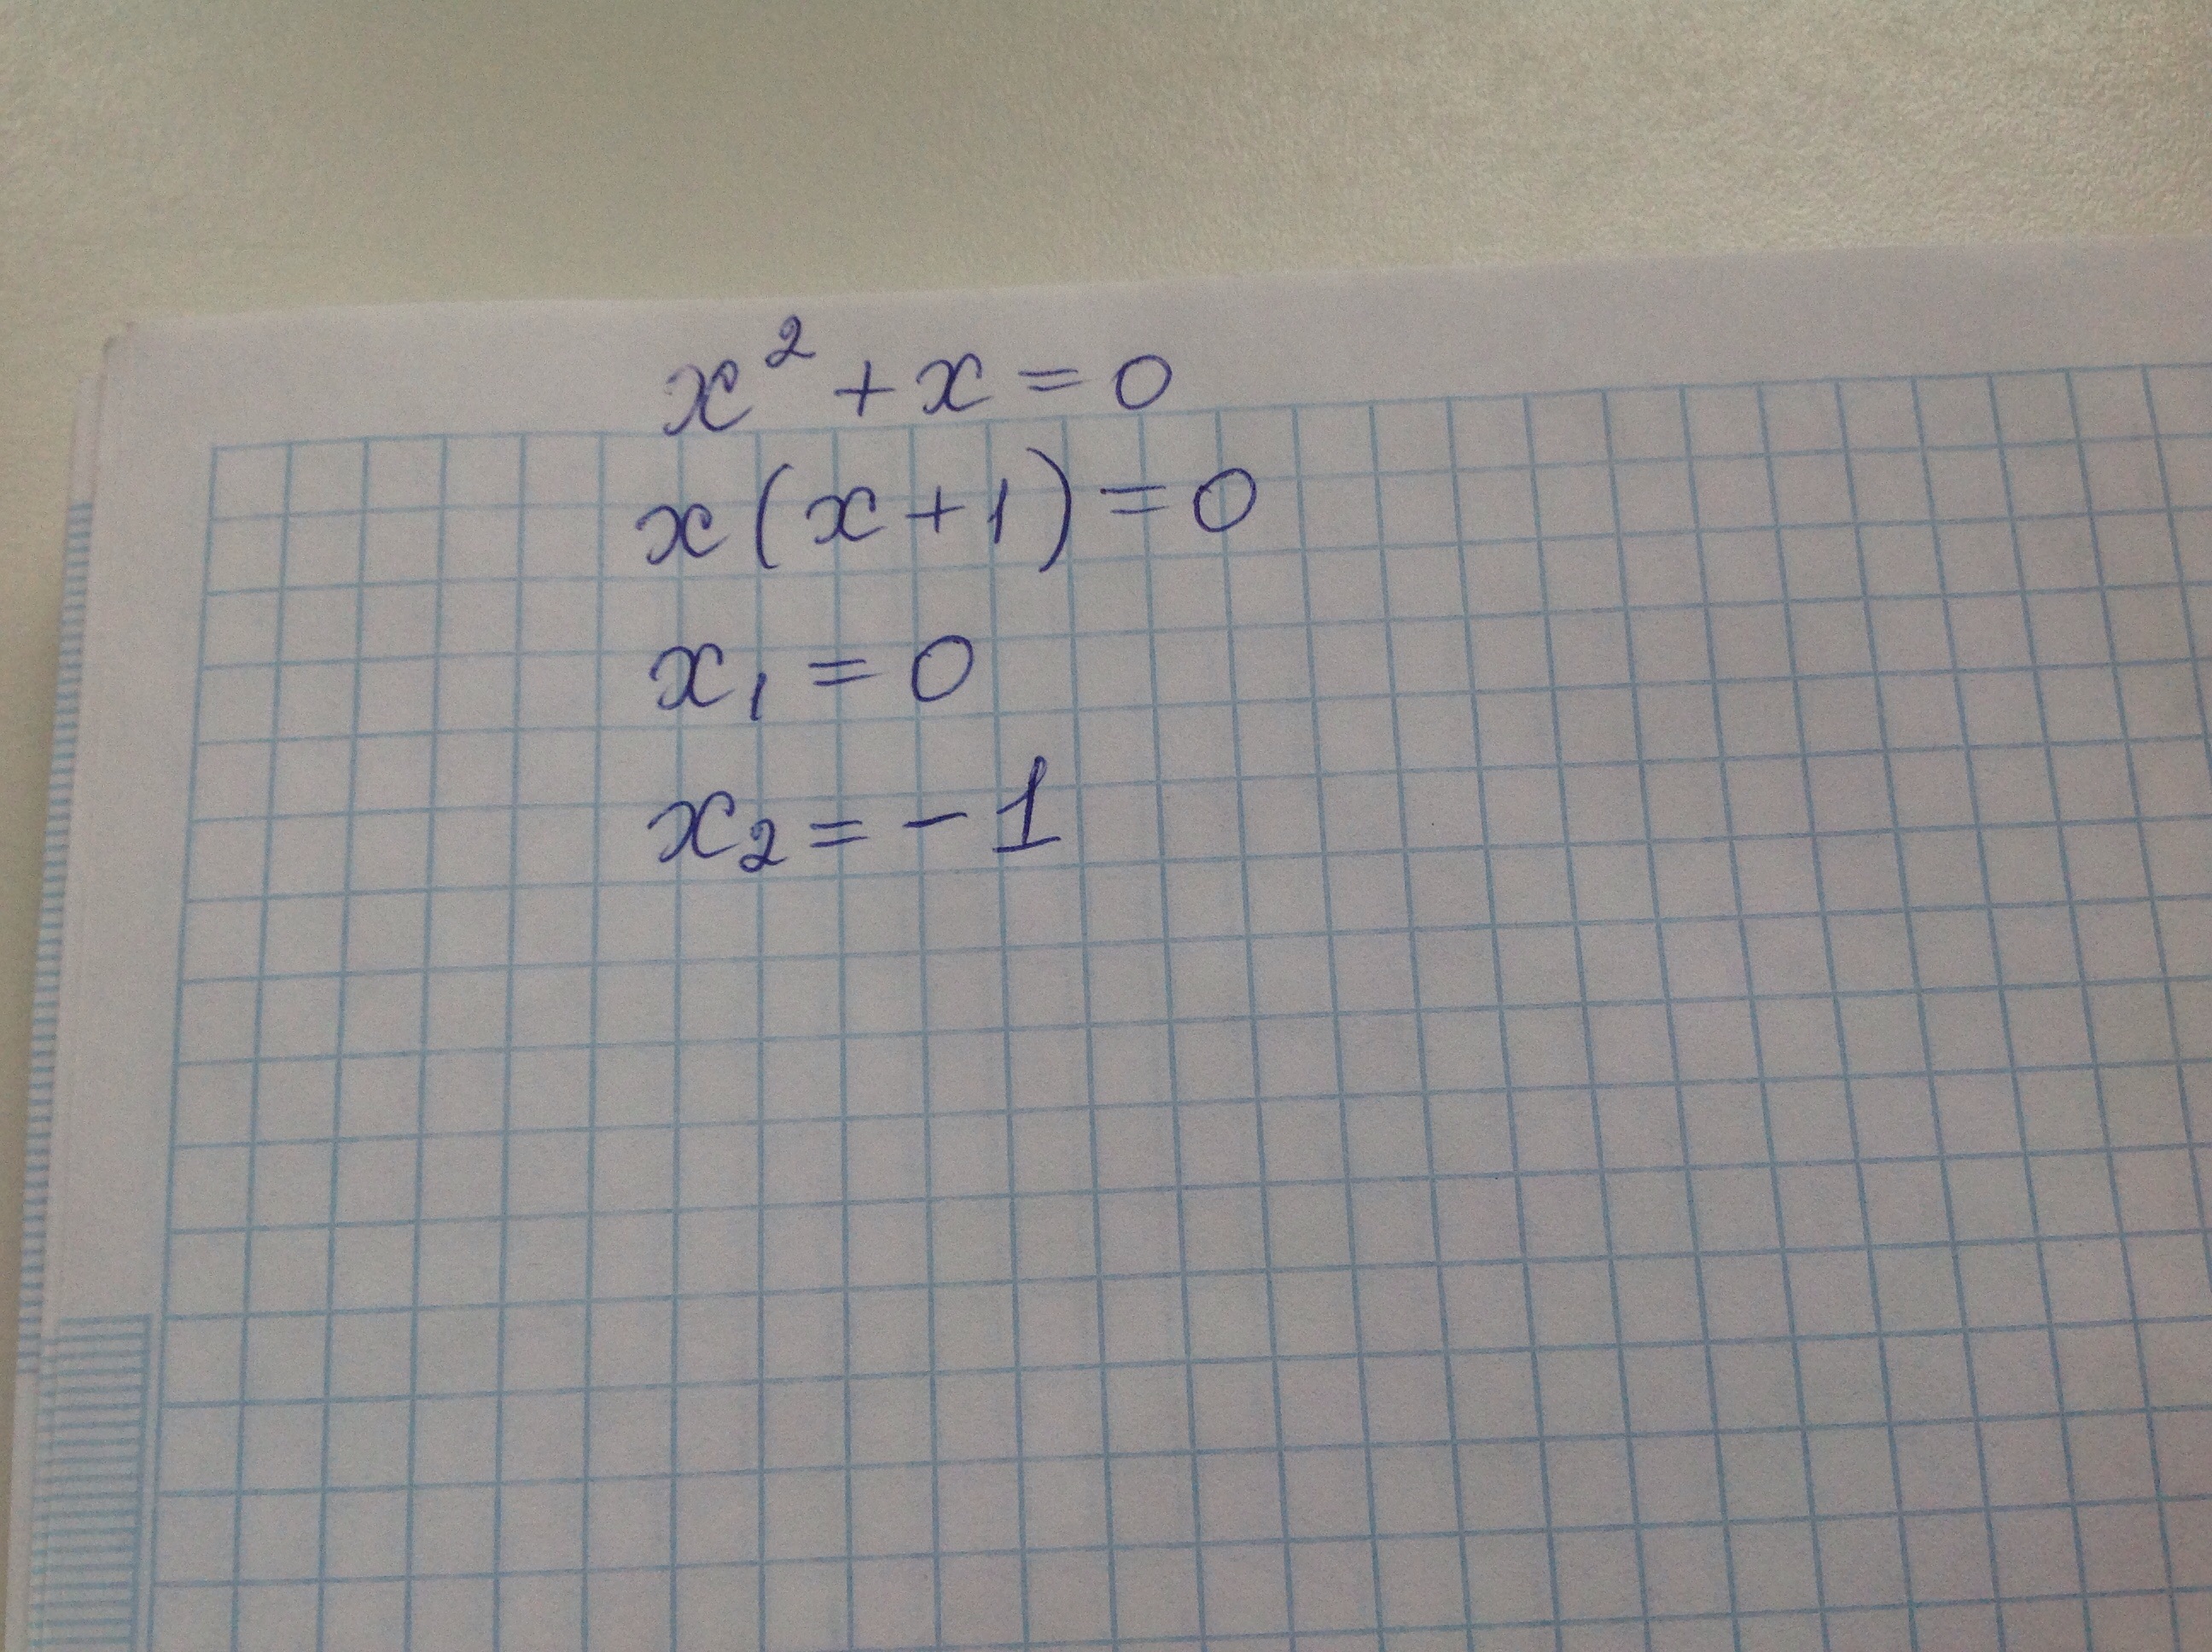 x² + x = 0
x(x+1) = 0
x₁ = 0
x₂ = -1